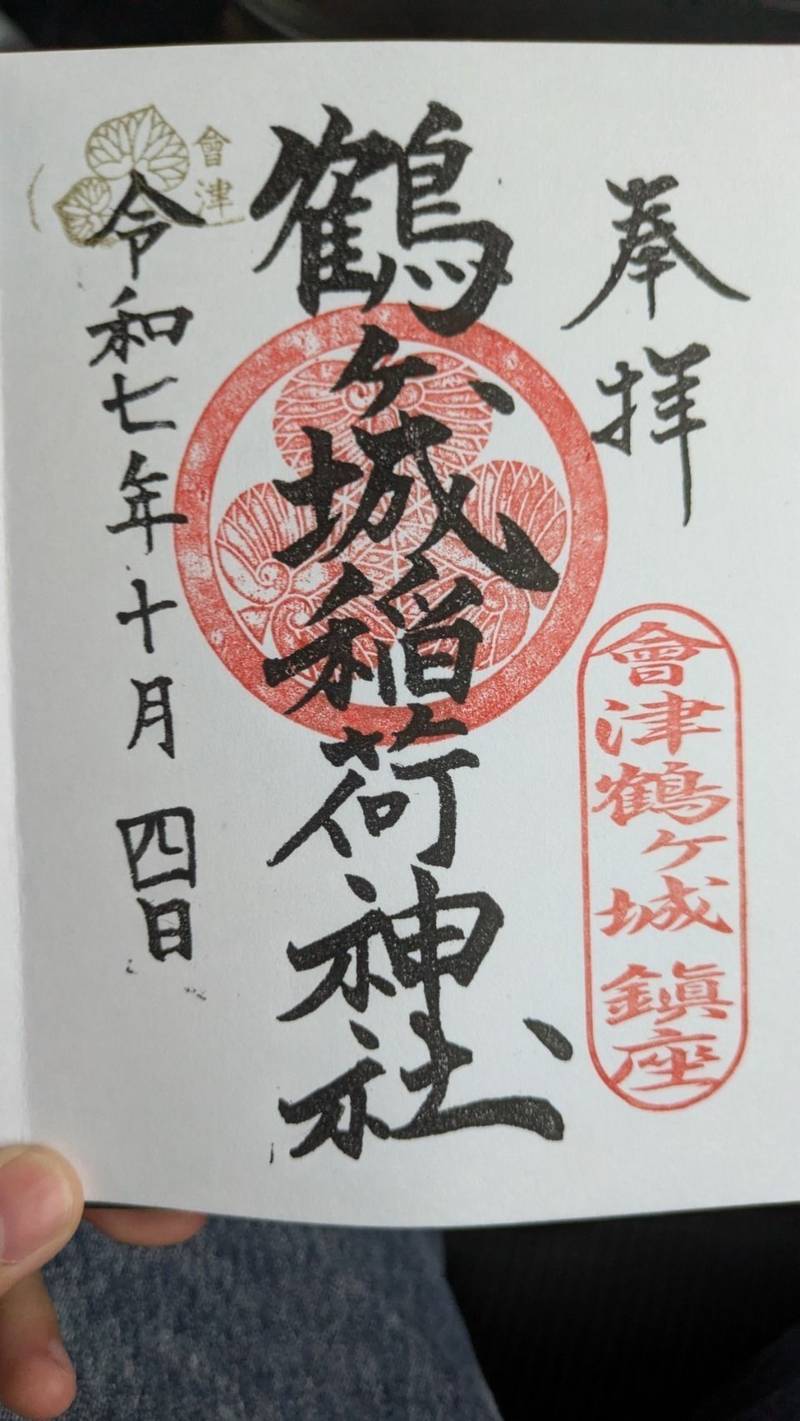 奉拝
會津鶴ヶ城鎮座
鶴ヶ城稲荷神社
會津
令和七年十月四日